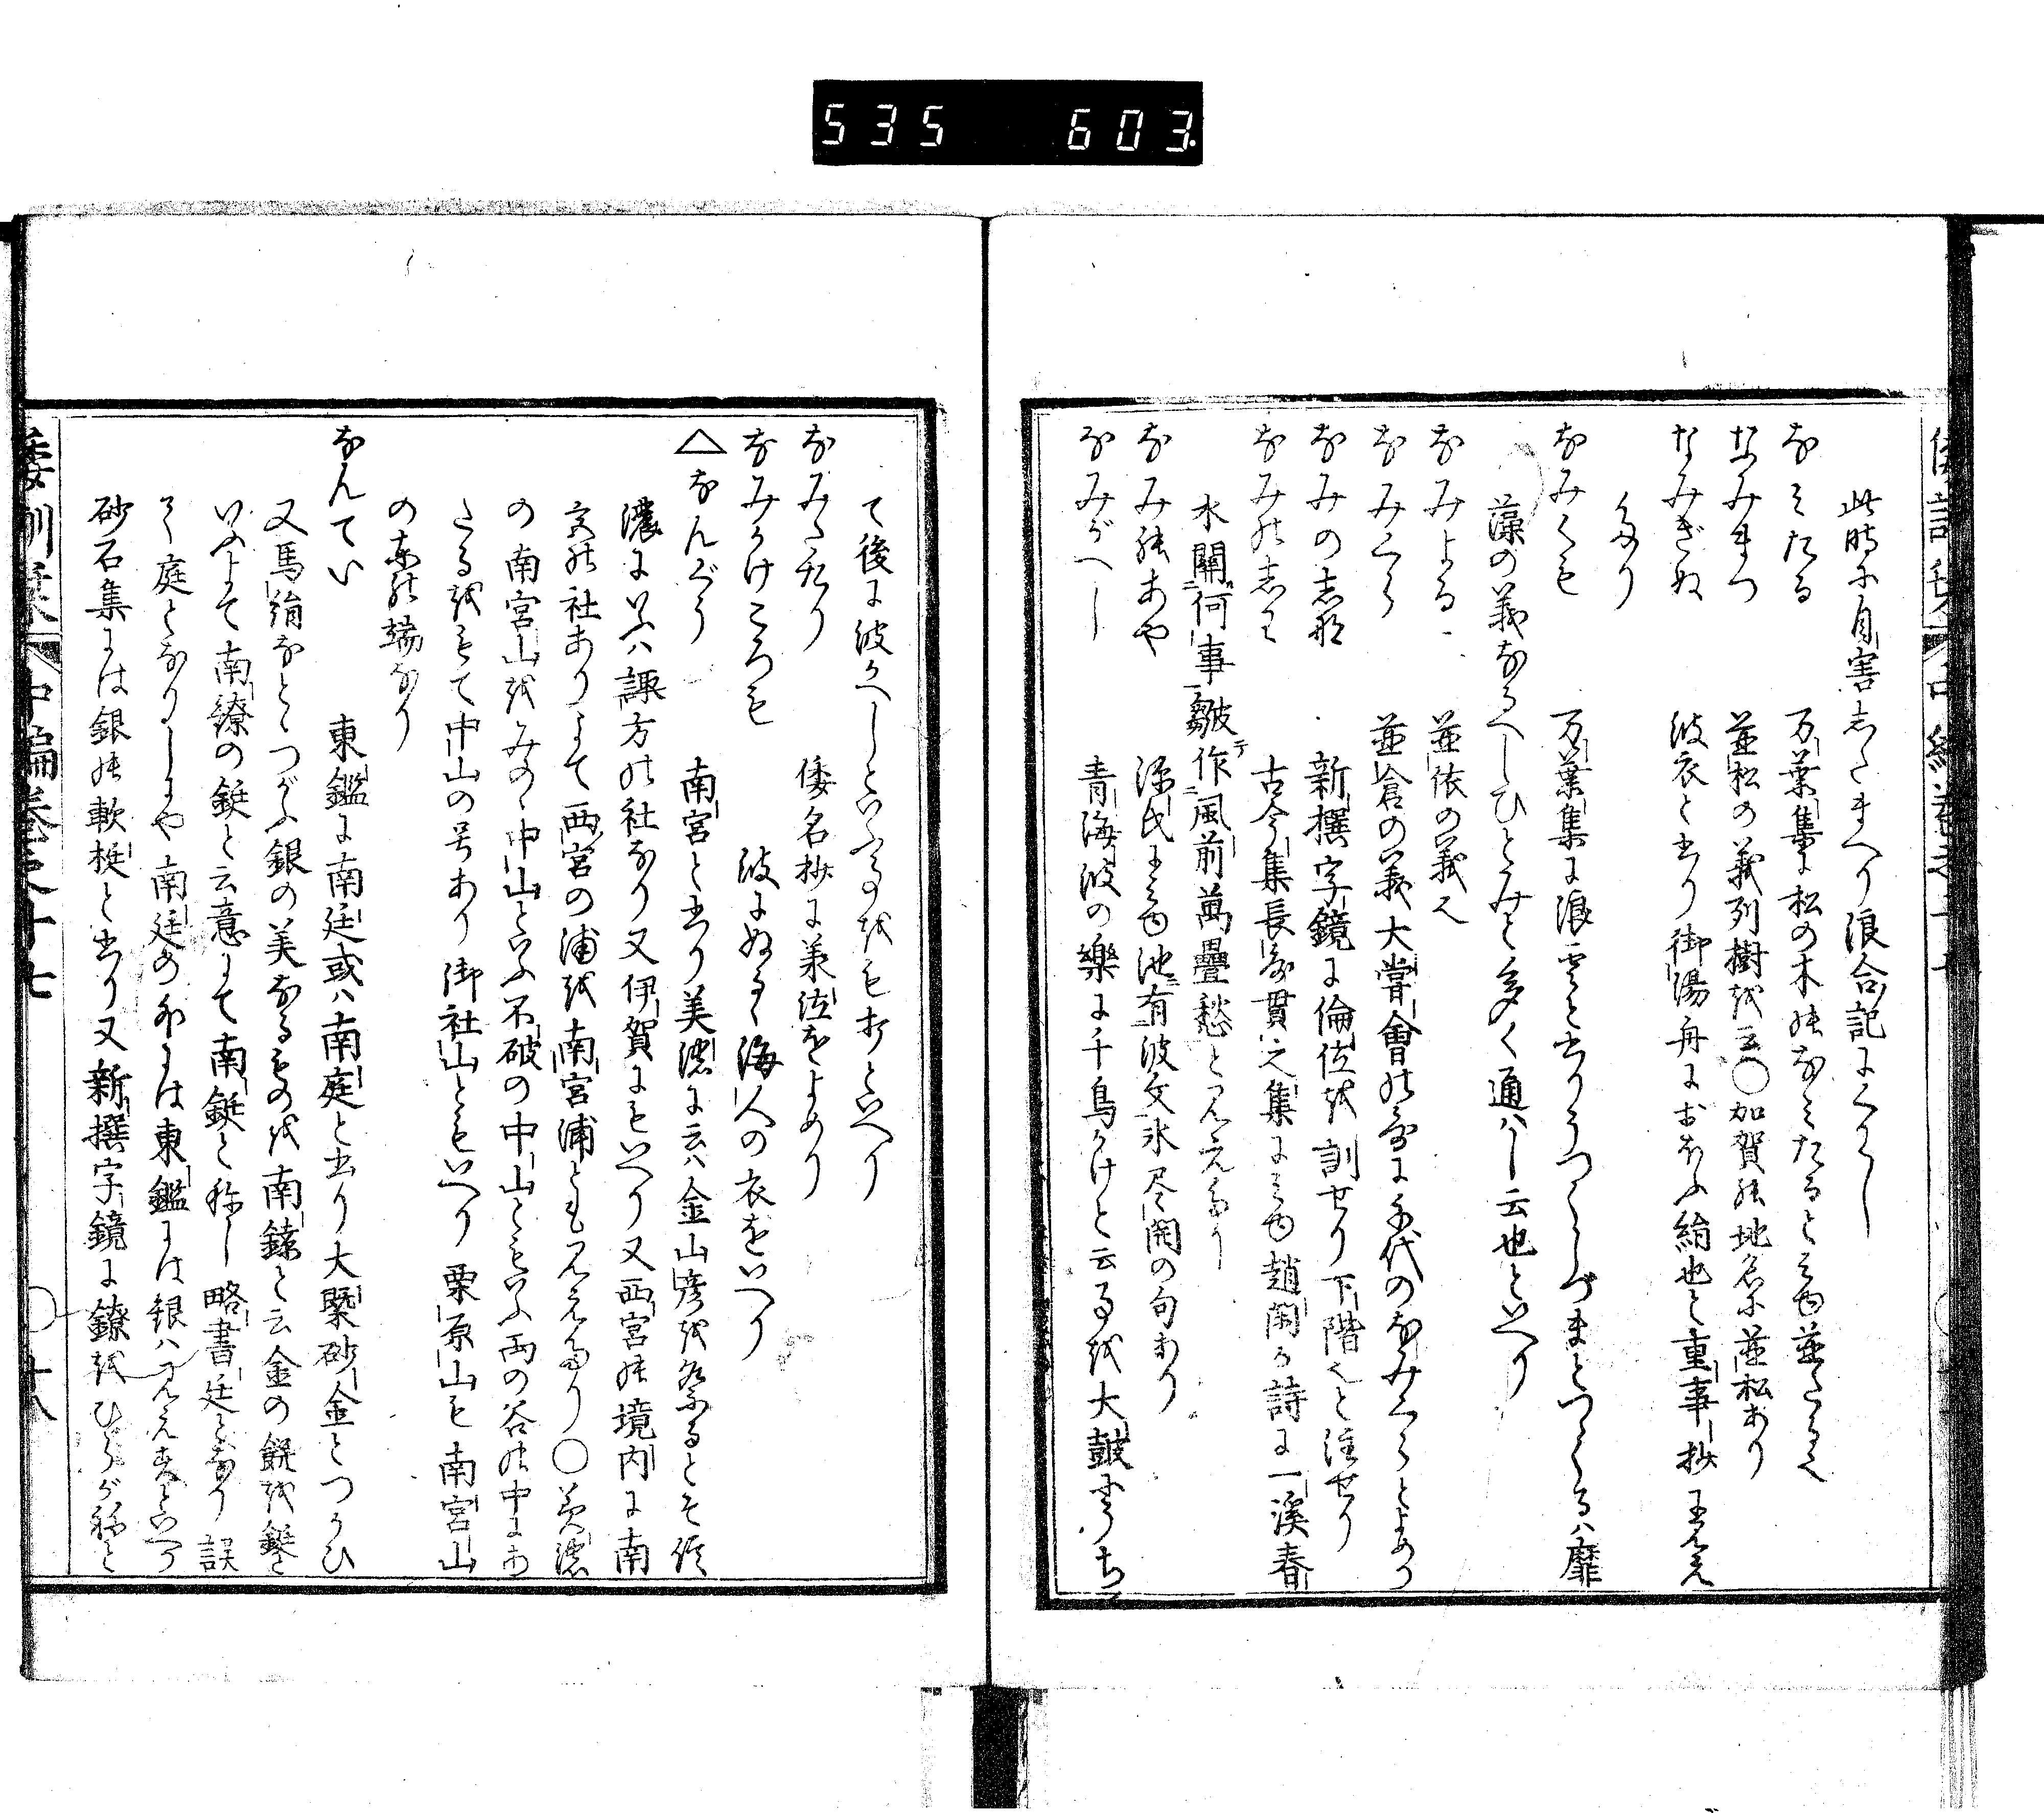 535 603
此時に自害したまへり浪合記にくはし
なみたる 万葉集に松の木のなみたると見ゆ並たる也
なみまつ 並松の義列樹を云○加賀の地名に並松あり
なみぎぬ 波衣と書り御湯舟におほふ絹也と重事抄に見え
たり
なみくも 万葉集に浪雲と書りうつくしづまとつゝくるハ靡
藻の義なるへしひとみと多く通ハし云也といへり
なみよる 並依の義也
なみくら 並倉の義大甞會の哥に千代のなみくらとよめり
なみのしな 新撰字鏡に倫位を訓せり下階也と注せり
なみのしわ 古今集長哥貫之集に見ゆ趙閑か詩に一渓春
水關何事皺作風前萬疊愁と見えたり
なみのあや 源氏に見ゆ池有波文氷尽開の句あり
なみがへし 青海波の樂に千鳥かけと云る越大皷
て後に波かへしといふ事をも打といへり
なみたかり 倭名抄に
なみかけころも 波にぬるゝ海人の衣をいへり
△なんぐう 南宮と書り美濃に云ハ金山彦を祭るとそ信
濃にいふハ諏方の社なり又伊賀にもいへり又西宮の境内に南
宮の社ありよて西宮の浦を南宮浦とも見えたり○美濃
の南宮山をみのゝ中山といふ不破の中山ともいふ両の谷の中にあ
たるをもて中山の号あり御社山ともいへり栗原山も南宮山
の東の端なり
なんてい 東鑑に南廷或ハ南庭と書り大槩砂金とつかひ
又馬絹なとゝつがふ銀の美なるものを南鐐と云金の餅を鋌と
いふよて南鐐の鋌と云意にて南鋌と称し略書廷となり誤
て庭となりしにや南廷の外には東鑑には銀ハ見えすといへり
砂石集には銀の軟梃と書り又新撰字鏡に鐐をひらがねと
倭訓栞 中編巻之十七 ○ 十八